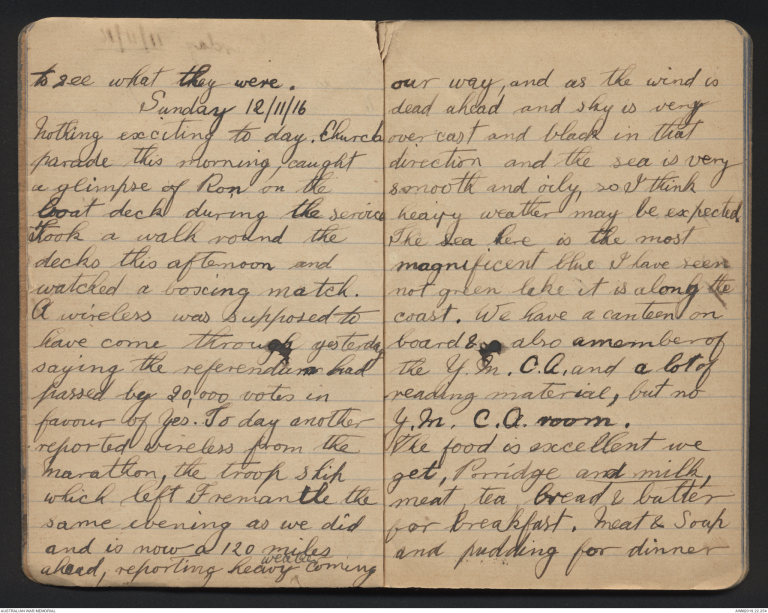 to see what they were.
Sunday 12/11/16
Nothing exciting to day. Church
parade this morning, caught
a glimpse of Ron on the
boat deck during the service
Took a walk round the
decks this afternoon and
watched a boxcing match.
A wireless was supposed to
have come through yesterday
saying the referendum had
passed by 20,000 votes in
favour of yes. To day another
reported wireless from the
Marathon, the troop ship
which left Fremantle the
same evening as we did
and is now a 120 miles
ahead, reporting heavy weather coming
our way, and as the wind is
dead ahead and sky is very
overcast and black in that
direction and the sea is very
smooth and oily, so I think
heavy weather may be expected.
The sea here is the most
magnificent blue I have seen
not green like it is along the
coast. We have a canteen on
board & also a member of
the Y.M.C.A. and a lot of
reading material, but no
Y.M.C.A. room.
The food is excellent we
get, Porridge and milk,
meat, tea bread & butter
for breakfast. Meat & Soup
and pudding for dinner
AUSTRALIAN WAR MEMORIAL